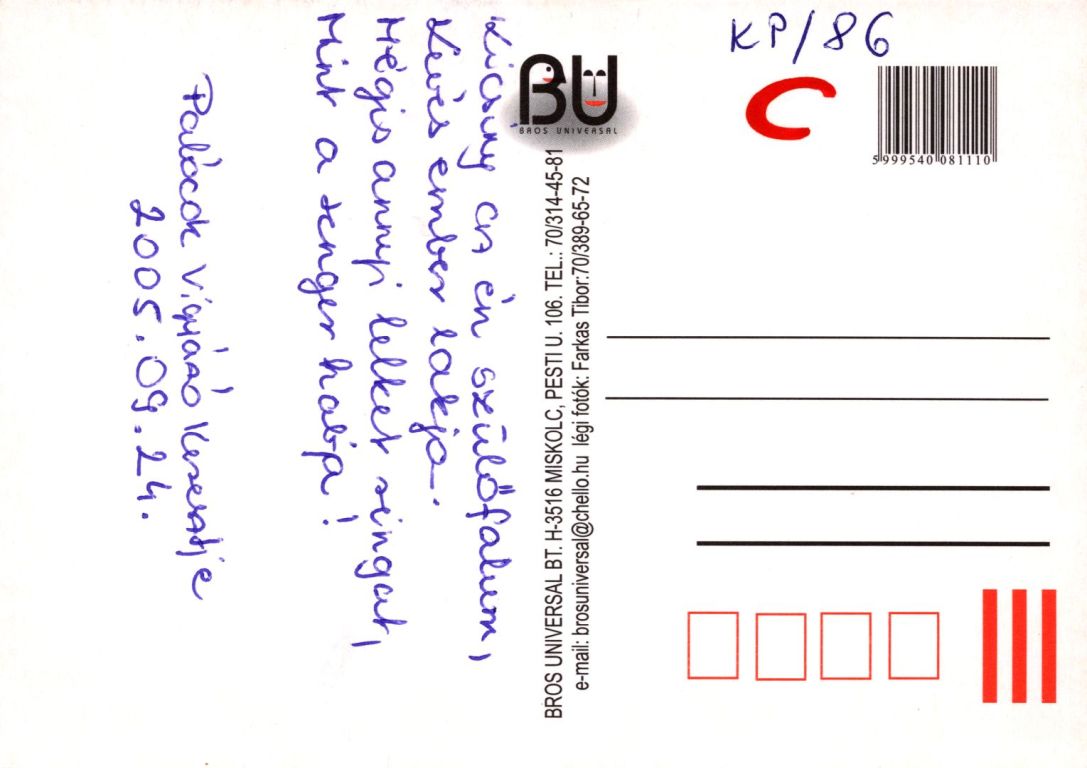 Kicsiny az én szülőfalum,
Kevés ember lakja.
Mégis annyi lelket ringat,
Mint a tenger habja!
Palócok Vigyázó Keresztje
2005.09.24.
BU
BROS UNIVERSAL
BROS UNIVERSAL BT. H-3516 MISKOLC, PESTI U. 106. TEL.: 70/314-45-81
e-mail: brosuniversal@chello.hu légi fotók: Farkas Tibor:70/389-65-72
KP/86
C
5999540 081110